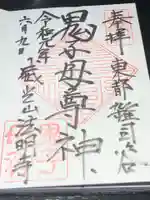 奉拝 東都 雑司ヶ谷
鬼子母尊神
令和元年
六月九日 威光山法明寺